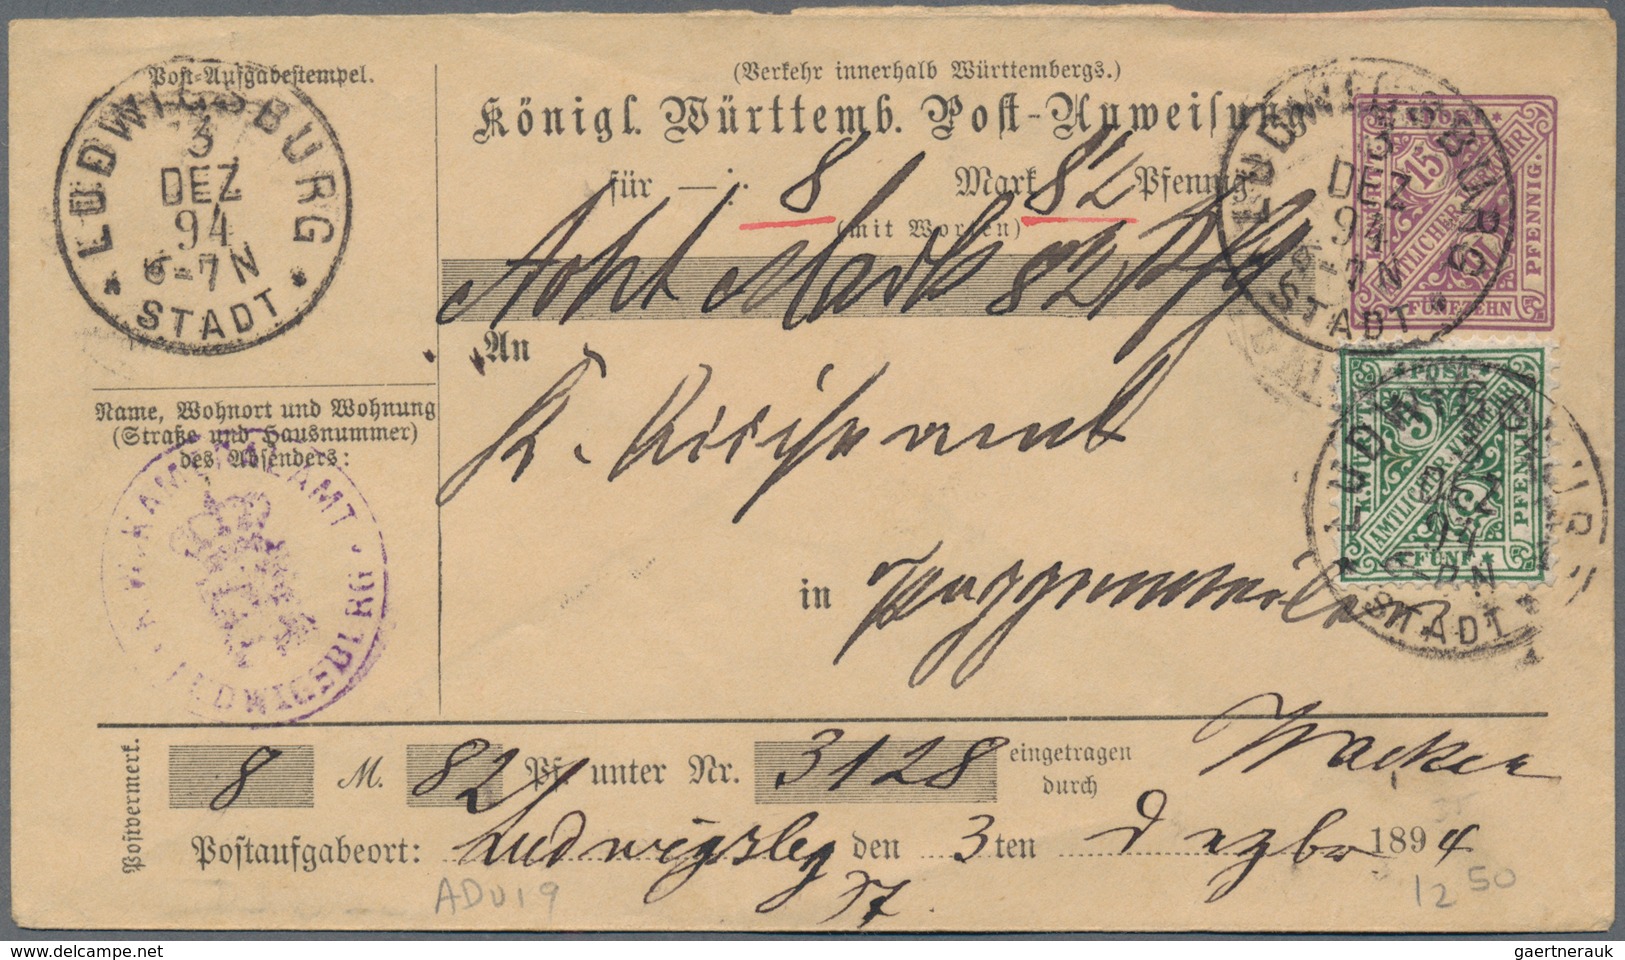 Post-Aufgabestempel.
LUDWIGSBURG
3
DEZ
94
6-7 N
* STADT *
(Verkehr innerhalb Württembergs.)
Königl. Württemb. Post-Anweisung
für —:. 8 Mark 82 Pfennig
(mit Worten)
Acht Mark 82 Pfg
LUDWIGSBURG
3
DEZ
94
6-7 N
STADT *
15
AMTLICHER VERKEHR
PFENNIG.
FÜNFZEHN
An
K.
in
* POST *
5
AMTLICHER VERKEHR
PFENNIG
* FÜNF *
LUDWIGSBURG
DEZ
94
STADT *
Name, Wohnort und Wohnung
(Straße und Hausnummer)
des Absenders:
K. W. KAMERALAMT
LUDWIGSBURG
Postvermerk.
8 M. 82 Pf. unter Nr. 3128 eingetragen
durch
Wacker
Postaufgabeort: Ludwigsbg den 3ten Dezbr 1894
ADU19
12 50
delcampe.net
gaertnerauk